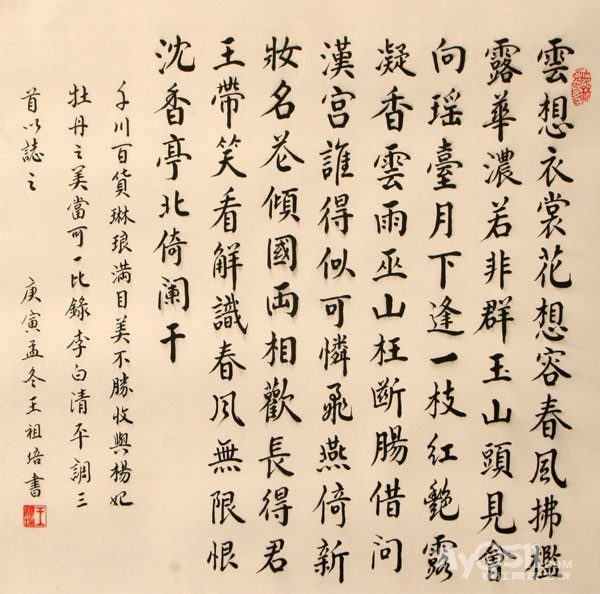 雲想衣裳花想容春風拂檻
露華濃若非群玉山頭見會
向瑶臺月下逢一枝紅艶露
凝香雲雨巫山枉斷腸借問
漢宮誰得似可憐飛燕倚新
妝名花傾國両相歡長得君
王帶笑看解識春風無限恨
沈香亭北倚闌干
千川百貨琳琅满目美不勝收與楊妃
牡丹之美當可一比錄李白清平調三
首以誌之
庚寅孟冬王祖培書
My0511.COM